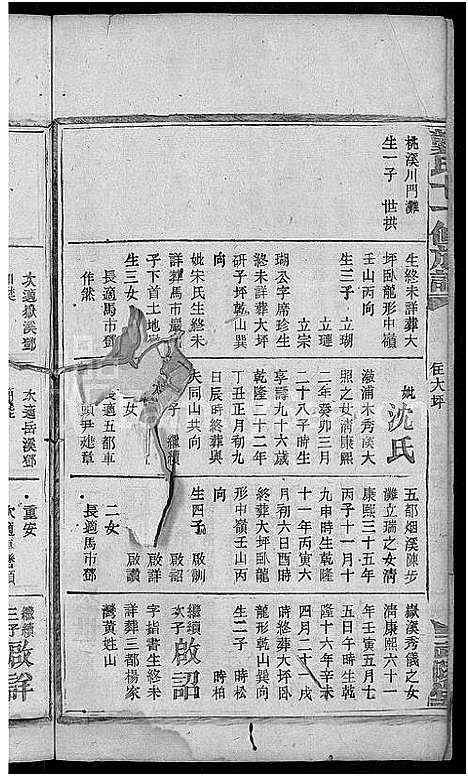 桃溪川門灘
生一子 世拱
生終未詳葬大
坪臥龍形中嶺
壬山丙向
生三子 立瑚
立璉
立宗
瑚公字席珍生
終未詳葬大坪
研子坪乾山巽
向
妣宋氏生終未
詳葬馬市巖
子下首土地
生三女
長適馬市鄧
作然
次適嶽溪鄧
妣沈氏
漵浦木秀溪大
熙之女清康熙
二年癸卯三月
二十八子時生
享壽九十六歲
乾隆二十二年
丁丑正月初九
日辰時終葬與
夫同山共向
子 繼續
二女
長適五都車
頭尹建章
次適岳溪鄧
五都烟溪陳步
灘立瑞之女清
康熙三十五年
丙子十一月十
九申時生乾隆
十一年丙寅六
月初六日酉時
終葬大坪臥龍
形中嶺壬山丙
向
生四子 啟訓
啟詔
啟詳
啟讚
二女
長適馬市鄧
重安
嶽溪秀儀之女
清康熙六十一
年壬寅五月七
五日午時生乾
隆十六年辛未
四月二十一戌
時終葬大坪臥
龍形乾山巽向
二子 時松
時柏
繼續次子啟詔
字指書生終未
詳葬三都楊家
灣黃姓山
繼續三子啟詳
任大坪